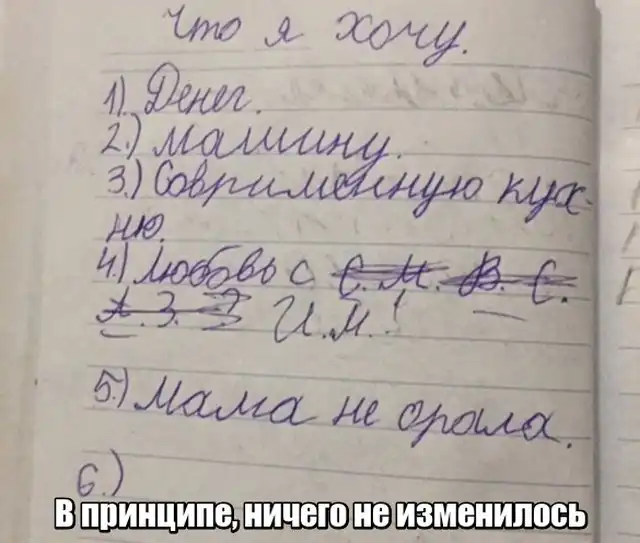 Что я хочу.
1). Денег.
2.) машину.
3.) Соврименную кух-
ню.
4.) Любовь с С. М. В. С.
А. З. И.М.!
5.) Мама не орала.
6.)
В принципе, ничего не изменилось